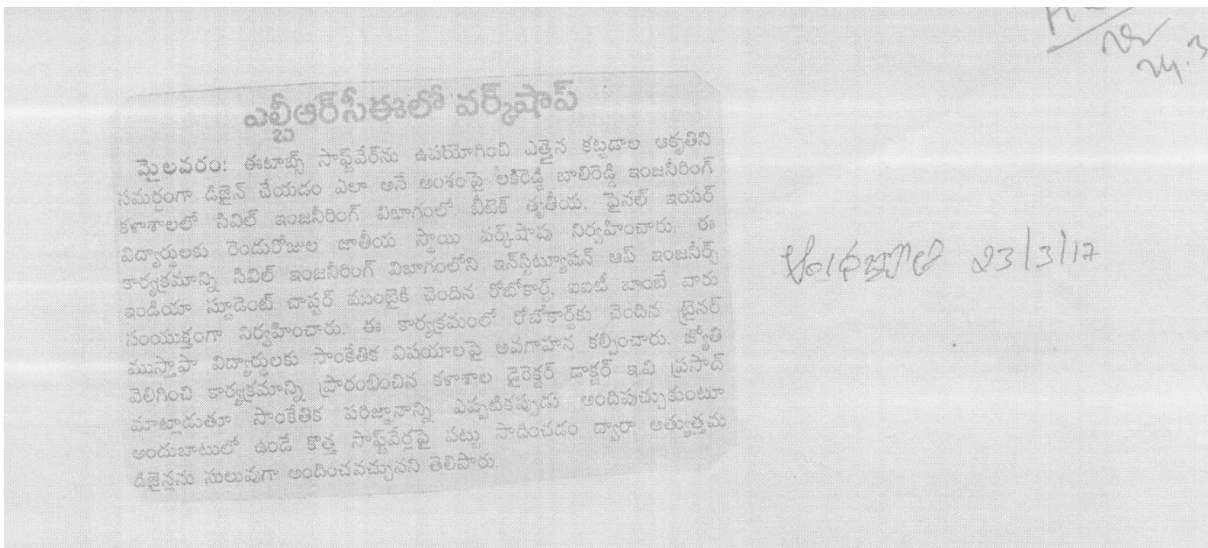 ఎల్బీఆర్‌సీఈలో వర్క్‌షాప్
మైలవరం: ఈటాబ్స్ సాఫ్ట్‌వేర్‌ను ఉపయోగించి ఎత్తైన కట్టడాల ఆకృతిని
సమర్థంగా డిజైన్ చేయడం ఎలా అనే అంశంపై లకిరెడ్డి బాలిరెడ్డి ఇంజనీరింగ్
కళాశాలలో సివిల్ ఇంజనీరింగ్ విభాగంలో బీటెక్ తృతీయ, ఫైనల్ ఇయర్
విద్యార్థులకు రెండురోజుల జాతీయ స్థాయి వర్క్‌షాపు నిర్వహించారు. ఈ
కార్యక్రమాన్ని సివిల్ ఇంజనీరింగ్ విభాగంలోని ఇన్‌స్టిట్యూషన్ ఆఫ్ ఇంజనీర్స్
ఇండియా స్టూడెంట్ చాప్టర్ ముంబైకి చెందిన రోబోకార్ట్, ఐఐటీ బాంబే వారు
సంయుక్తంగా నిర్వహించారు. ఈ కార్యక్రమంలో రోబోకార్ట్‌కు చెందిన ట్రైనర్
ముస్తాఫా విద్యార్థులకు సాంకేతిక విషయాలపై అవగాహన కల్పించారు. జ్యోతి
వెలిగించి కార్యక్రమాన్ని ప్రారంభించిన కళాశాల డైరెక్టర్ డాక్టర్ ఇవి ప్రసాద్
మాట్లాడుతూ సాంకేతిక పరిజ్ఞానాన్ని ఎప్పటికప్పుడు అందిపుచ్చుకుంటూ
అందుబాటులో ఉండే కొత్త సాఫ్ట్‌వేర్లపై పట్టు సాధించడం ద్వారా అత్యుత్తమ
డిజైన్లను సులువుగా అందించవచ్చునని తెలిపారు.
ఆంధ్రజ్యోతి 23/3/17